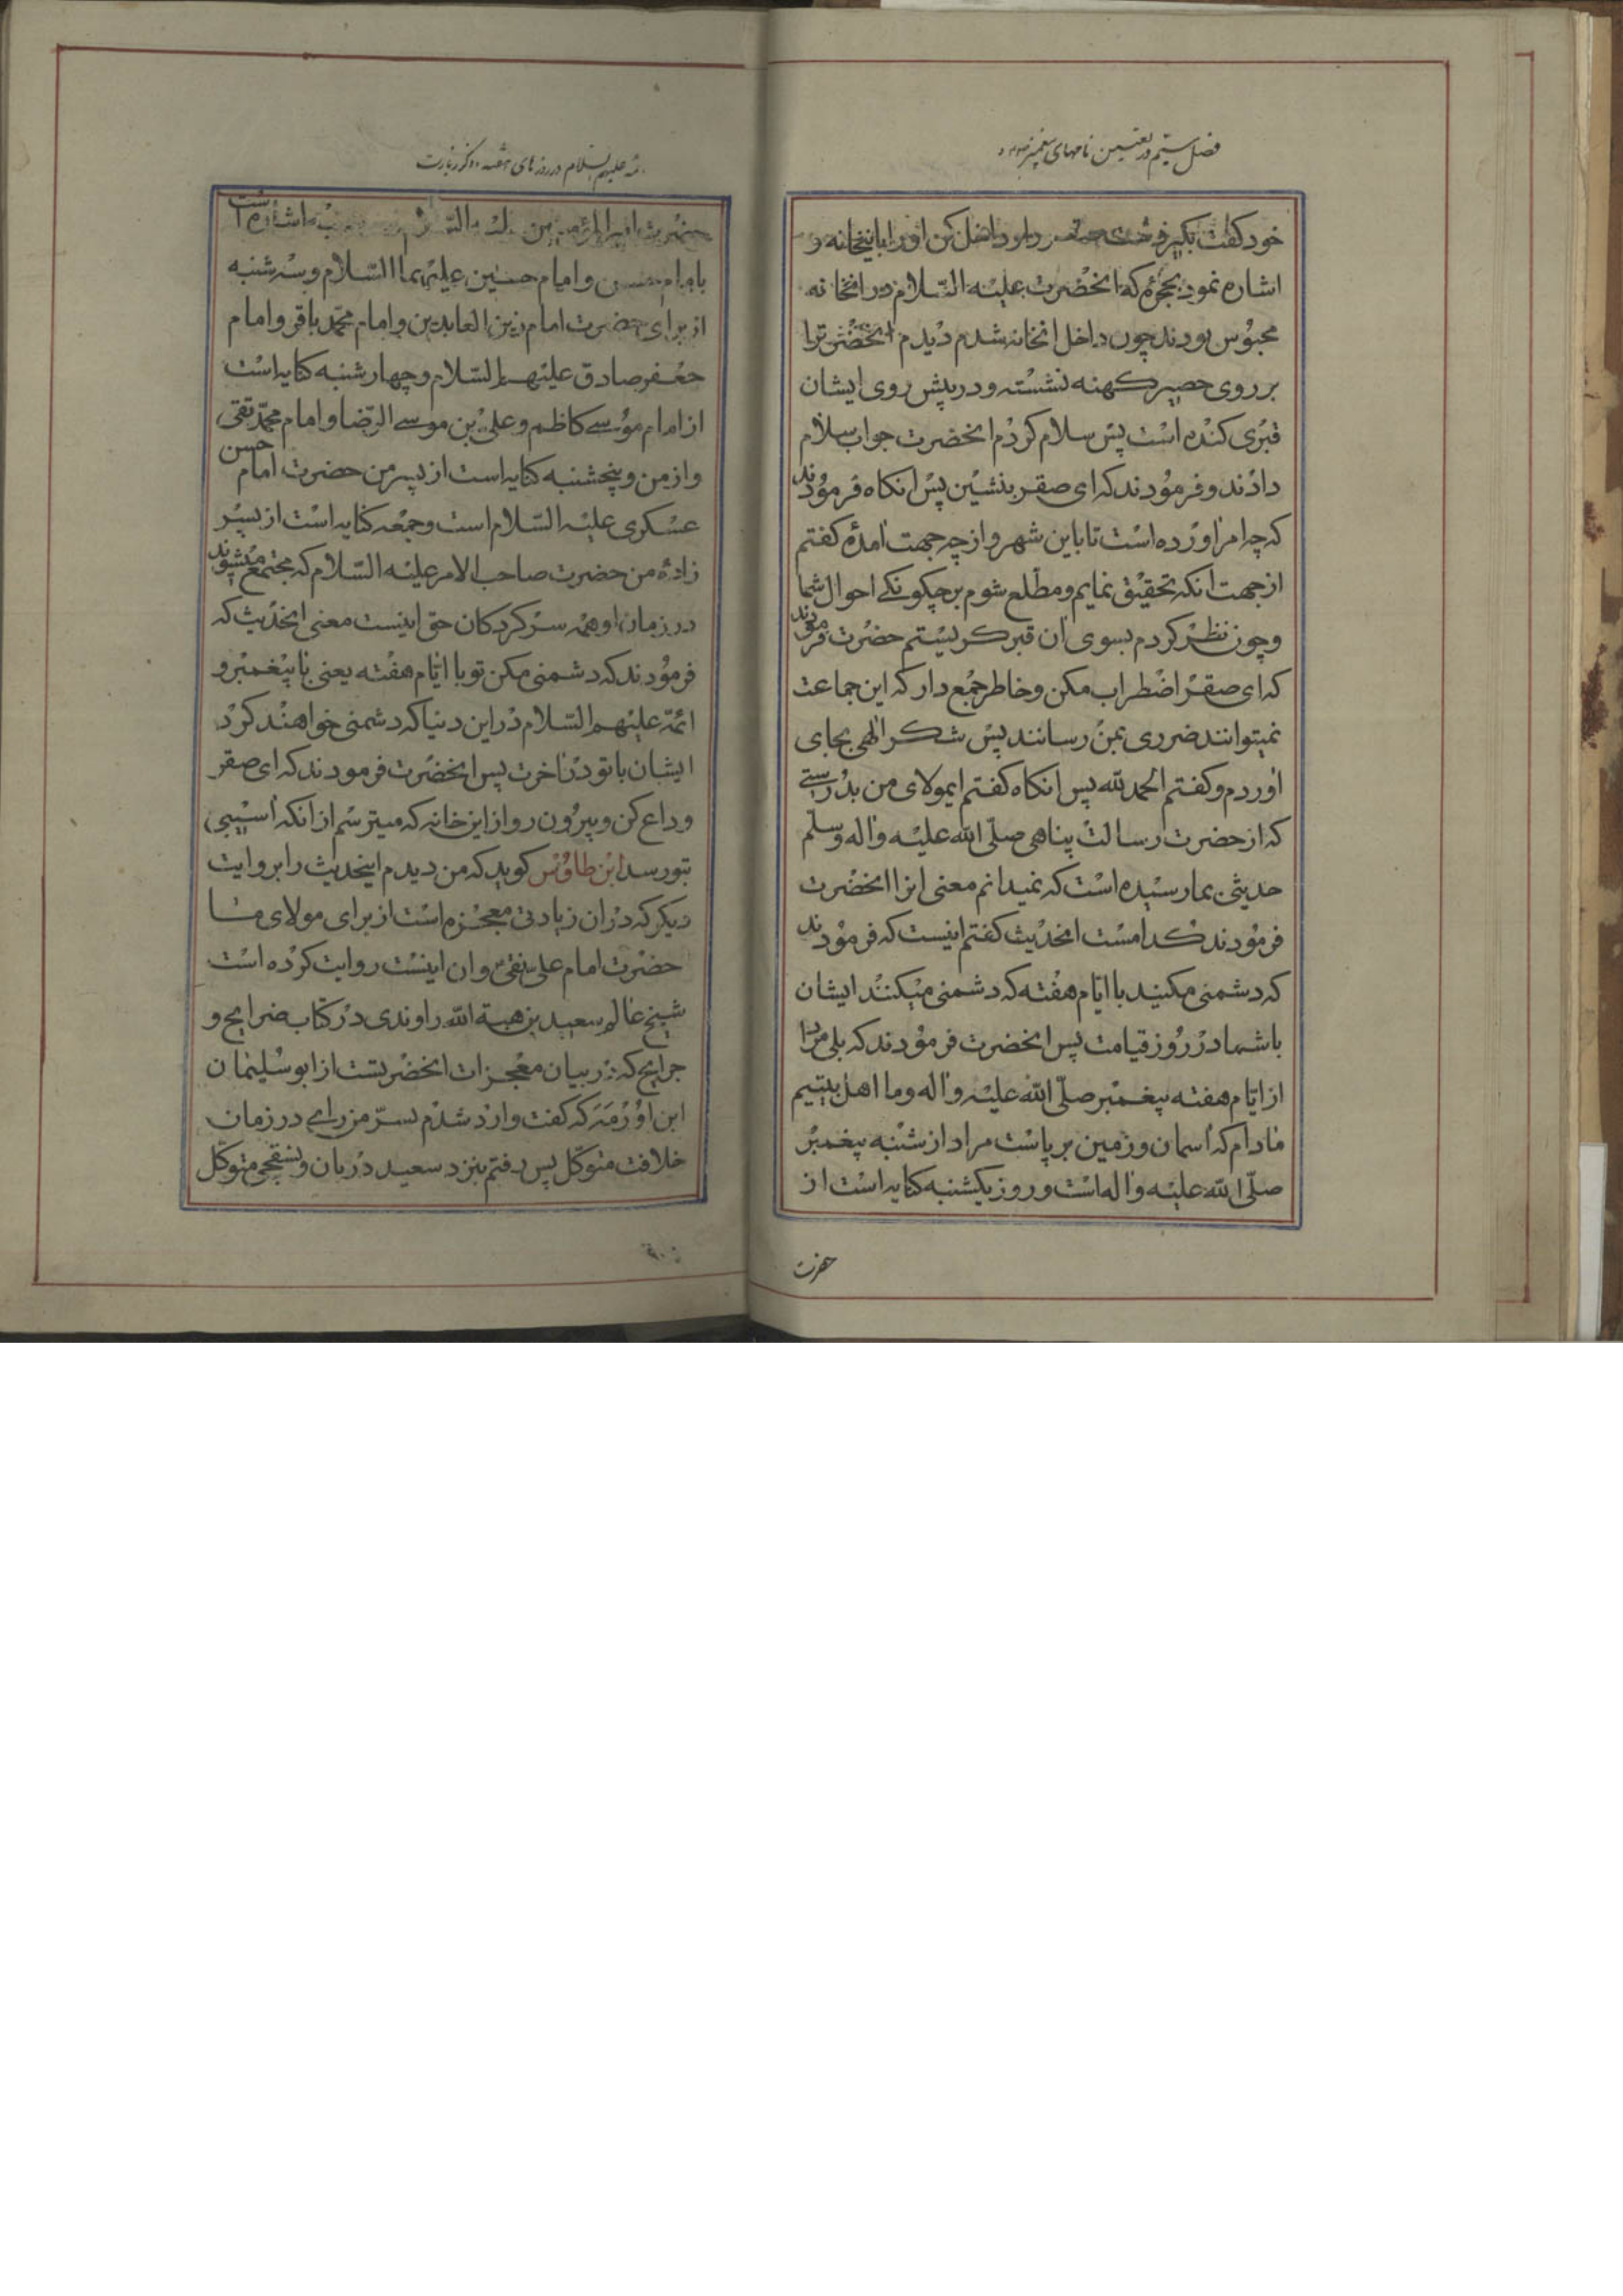 فصل سیّم در تعیین نامهای پیغمبر و
خود کفت بکیر و داخل کن اورا باینخانه و
اشاره نمود بحجرۀ که انحضرت علیه السّلام در انخانه
محبوس بودند چون داخل انخانه شدم دیدم انحضرترا
بر روی حصیر کهنه نشسته و در پیش روی ایشان
قبری کنده است پس سلام کردم انحضرت جواب سلام
دادند و فرمودند که ای صقر بنشین پس انکاه فرمودند
که چه امر اورده است ترا باین شهر و از چه جهت امدۀ کفتم
از جهت انکه تحقیق نمایم و مطّلع شوم بر چکونکے احوال شما
و چون نظر کردم بسوی ان قبر کریستم حضرت فرمودند
که ای صقر اضطراب مکن و خاطر جمع دار که این جماعت
نمیتوانند ضرری بمن رسانند پس شکر الهی بجای
اوردم و کفتم الحمد لله پس انکاه کفتم ایمولای من بدرستے
که از حضرت رسالت پناهی صلّی الله علیه و اله و سلم
حدیثی بما رسیده است که نمیدانم معنی انرا انحضرت
فرمودند کدامست انحدیث کفتم اینست که فرمودند
که دشمنی مکنید با ایّام هفته که دشمنی میکنند ایشان
با شما در روز قیامت پس انحضرت فرمودند که بلی مراد
از ایّام هفته پیغمبر صلّی الله علیه و اله و ما اهل بیتیم
مادام که اسمان و زمین بر پاست مراد از شنبه پیغمبر
صلّی الله علیه و اله است و روز یکشنبه کنایه است از
حضرت
ئمه علیهم السّلام در روزهای هفته و ذکر زیارت
حضرت امیر المؤمنین اشاره است
بامام حسن و امام حسین علیهما السّلام و سه شنبه
از برای حضرت امام زین العابدین و امام محمّد باقر و امام
جعفر صادق علیهم السّلام و چهار شنبه کنایه است
از امام موسے کاظم و علی بن موسے الرّضا و امام محمّد تقی
و از من و پنجشنبه کنایه است از پسر من حضرت امام حسن
عسکری علیه السّلام است و جمعه کنایه است از پسر
زادۀ من حضرت صاحب الامر علیه السّلام که مجتمع میشوند
در زمان او همه سر کردکان حق اینست معنی انحدیث که
فرمودند که دشمنی مکن تو با ایّام هفته یعنی با پیغمبر و
ائمّه علیهم السّلام در این دنیا که دشمنی خواهند کرد
ایشان با تو در اخرت پس انحضرت فرمودند که ای صقر
وداع کن و بیرون رو از این خانه که میترسم از انکه اسیبی
بتو رسد ابن طاوس کوید که من دیدم اینحدیث را بروایت
دیکر که در ان زیادتی معجزه است از برای مولای ما
حضرت امام علی نقی و ان اینست روایت کرده است
شیخ عالم سعید بن هبة الله راوندی در کتاب خرایج و
جرایح که در بیان معجزات انحضرتست از ابو سلیمان
ابن اورمه که کفت وارد شدم بسرّ من رای در زمان
خلافت متوکّل پس رفتم بنزد سعید دربان و نسقچی متوکّل